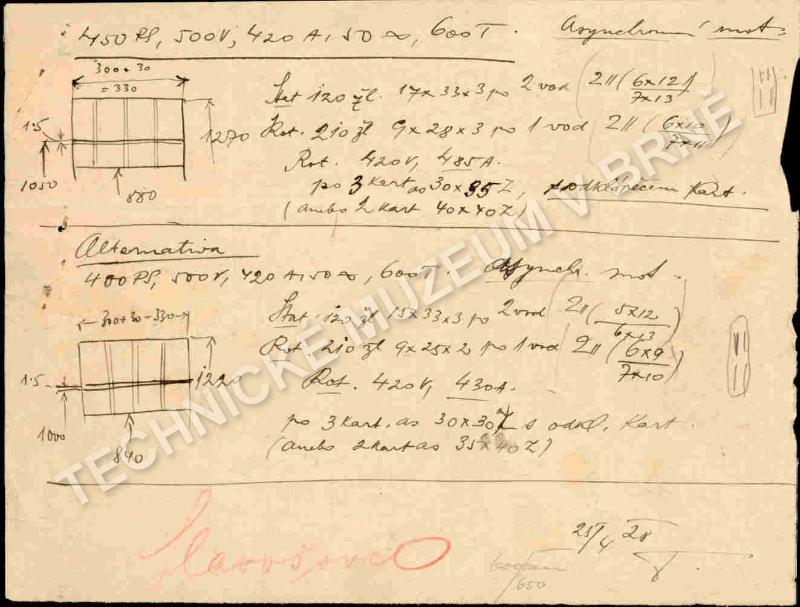 450 PS, 500V, 420 A, 50 ∞, 600T. Asynchronní mot.
300+30
= 330
1.5
1270
1050
880
Stat 120 žl. 17x33x3 po 2 vod (2 11 (6x12)
7x13
Rot. 210 žl 9x28x3 po 1 vod 2 11 (6x10)
7x11
Rot. 420V, 485A.
po 3 kart ao 30x35Z, kart.
(anebo 2 kart 40x40Z)
Alternativa
400PS, 500V, 420 A, 50 ∞, 600T Asynchr. mot.
300+30=330
1.5
1220
1000
840
Stat. 120 žl 15x33x3 po 2 vod 2 11 (5x12)
6x13
Rot 210 žl 9x25x2 po 1 vod 2 11 (6x9)
7x10
Rot. 420V, 430A.
po 3 kart. ao 30x30Z s odkl. kart.
(anebo 2 kart ao 35x40Z)
25/4 28
650
TECHNICKÉ MUZEUM V BRNĚ